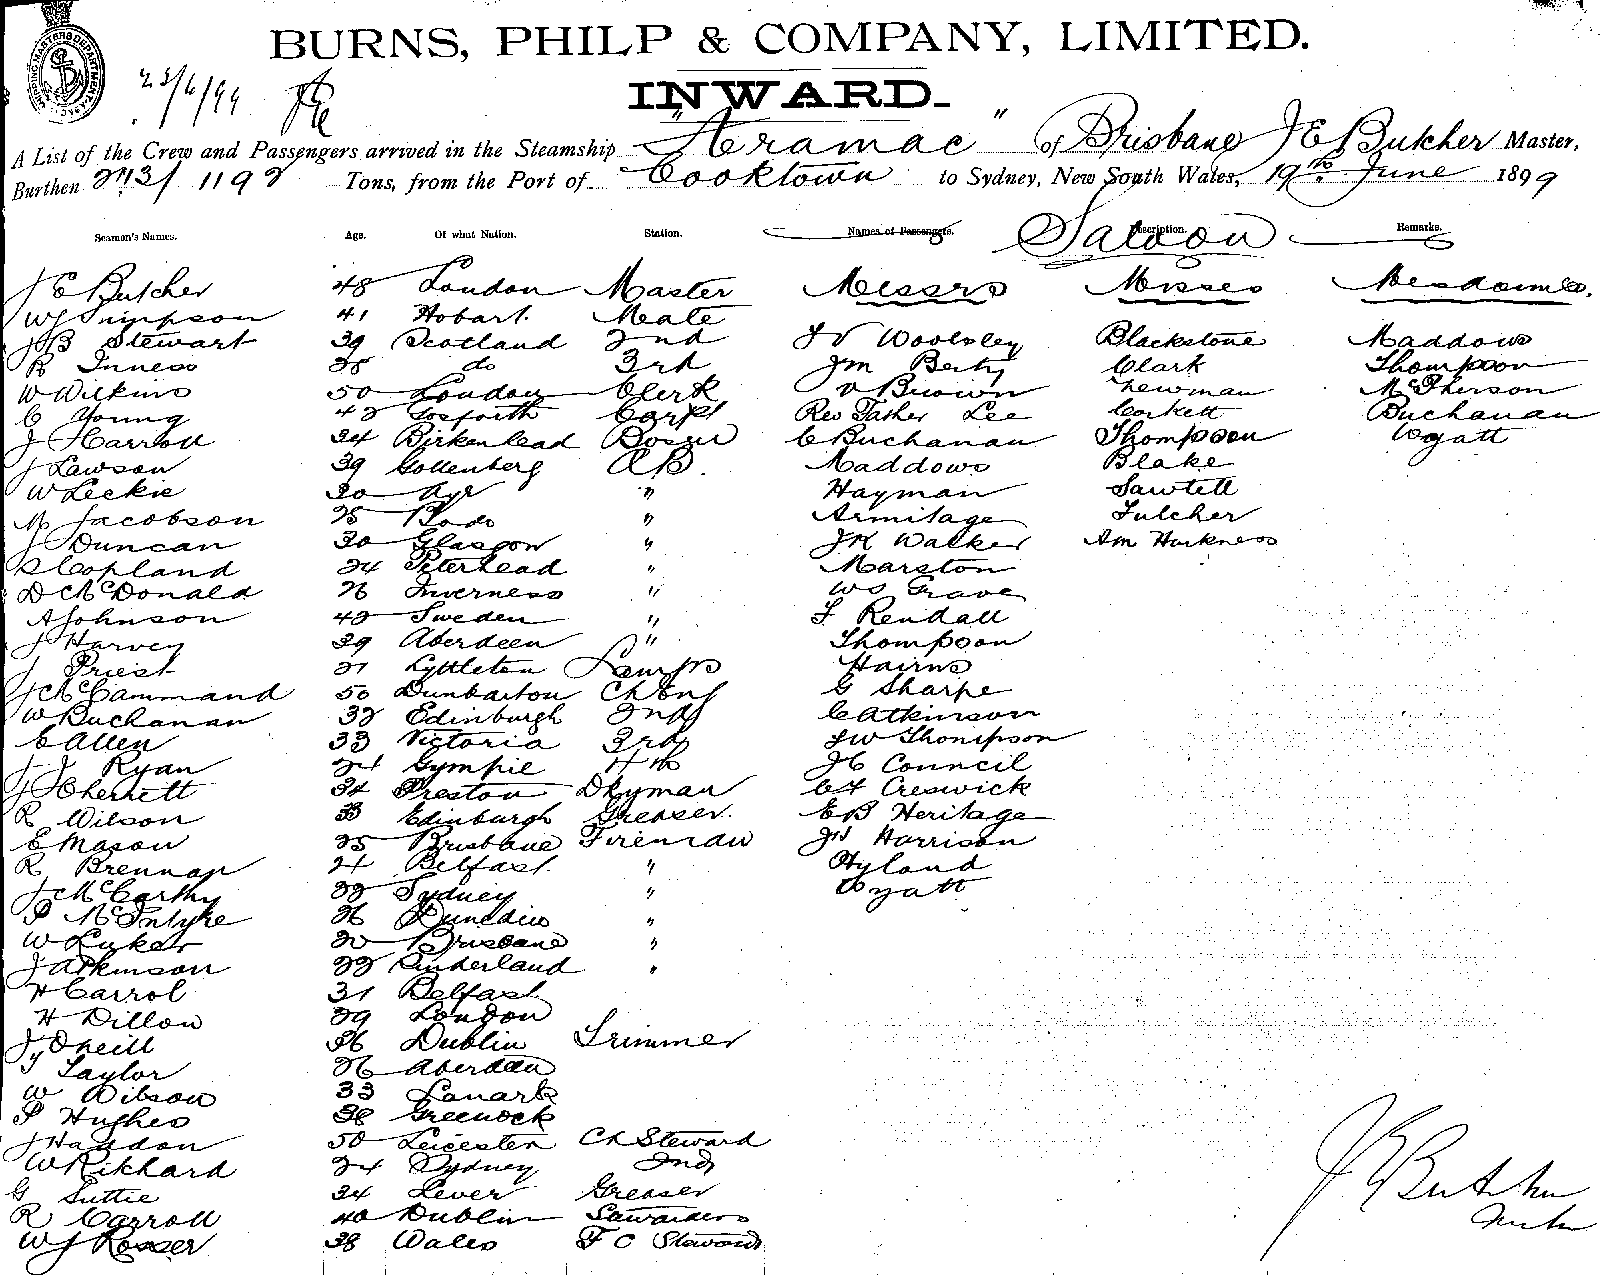 BURNS, PHILP & COMPANY, LIMITED.
23/6/99
INWARD.
A List of the Crew and Passengers arrived in the Steamship "Aramac" of Brisbane J E Butcher Master,
Burthen Tons, from the Port of Cooktown to Sydney, New South Wales, 19th June 1899
Seamen's Names. Age. Of what Nation. Station. Names of Passengers. Description. Remarks.
Saloon
J E Butcher 48 London Master Messrs Misses Mesdames.
W J Simpson 41 Hobart Mate
J B Stewart 39 Scotland 2nd Woolsley Blackstone Maddows
R Inness do 3rd Clark Thompson
W Wilkins 50 London Clerk Brown Newman McPherson
C Young Carp Rev Father Lee Corkett Buchanan
J Carroll 34 Birkenhead Bosun C Buchanan Thompson Wyatt
J Lawson 39 AB. Maddows Blake
W Leckie 30 Ayr " Hayman Sawtell
M Jacobson " Armitage Fulcher
J Duncan 30 Glasgow " J K Walker Am Harkness
Copland 24 Peterhead " Marston
D McDonald 26 Inverness " Grave
A Johnson Sweden " Rendall
J Harvey 39 Aberdeen " Thompson
J Priest Lyttleton Lamps Hairns
J McCammand 50 Dunbarton Ch Eng G Sharpe
W Buchanan Edinburgh 2nd C Atkinson
C Allen 33 Victoria 3rd J W Thompson
J J Ryan 24 Gympie 4th Council
34 Preston Dkyman Creswick
R Wilson 33 Edinburgh Greaser. E B Heritage
E Mason 25 Brisbane Fireman Harrison
R Brennan 24 Belfast " Hyland
J McCarthy Sydney " Wyatt
P McIntyre 26 Dunedin "
W Luker Brisbane "
J Atkinson Sunderland "
H Carrol 31 Belfast
H Dillon 29 London
J O'Neill 36 Dublin Trimmer
Taylor 26 Aberdeen
W Wilson 33 Lanark
P Hughes 38 Greenock
J Haddon 50 Leicester Ch Steward
W Rikhard 24 Sydney 2nd
G Suttie 34 Greaser
R Carroll 40 Dublin
W J Rosser 38 Wales F C Steward
J E Butcher